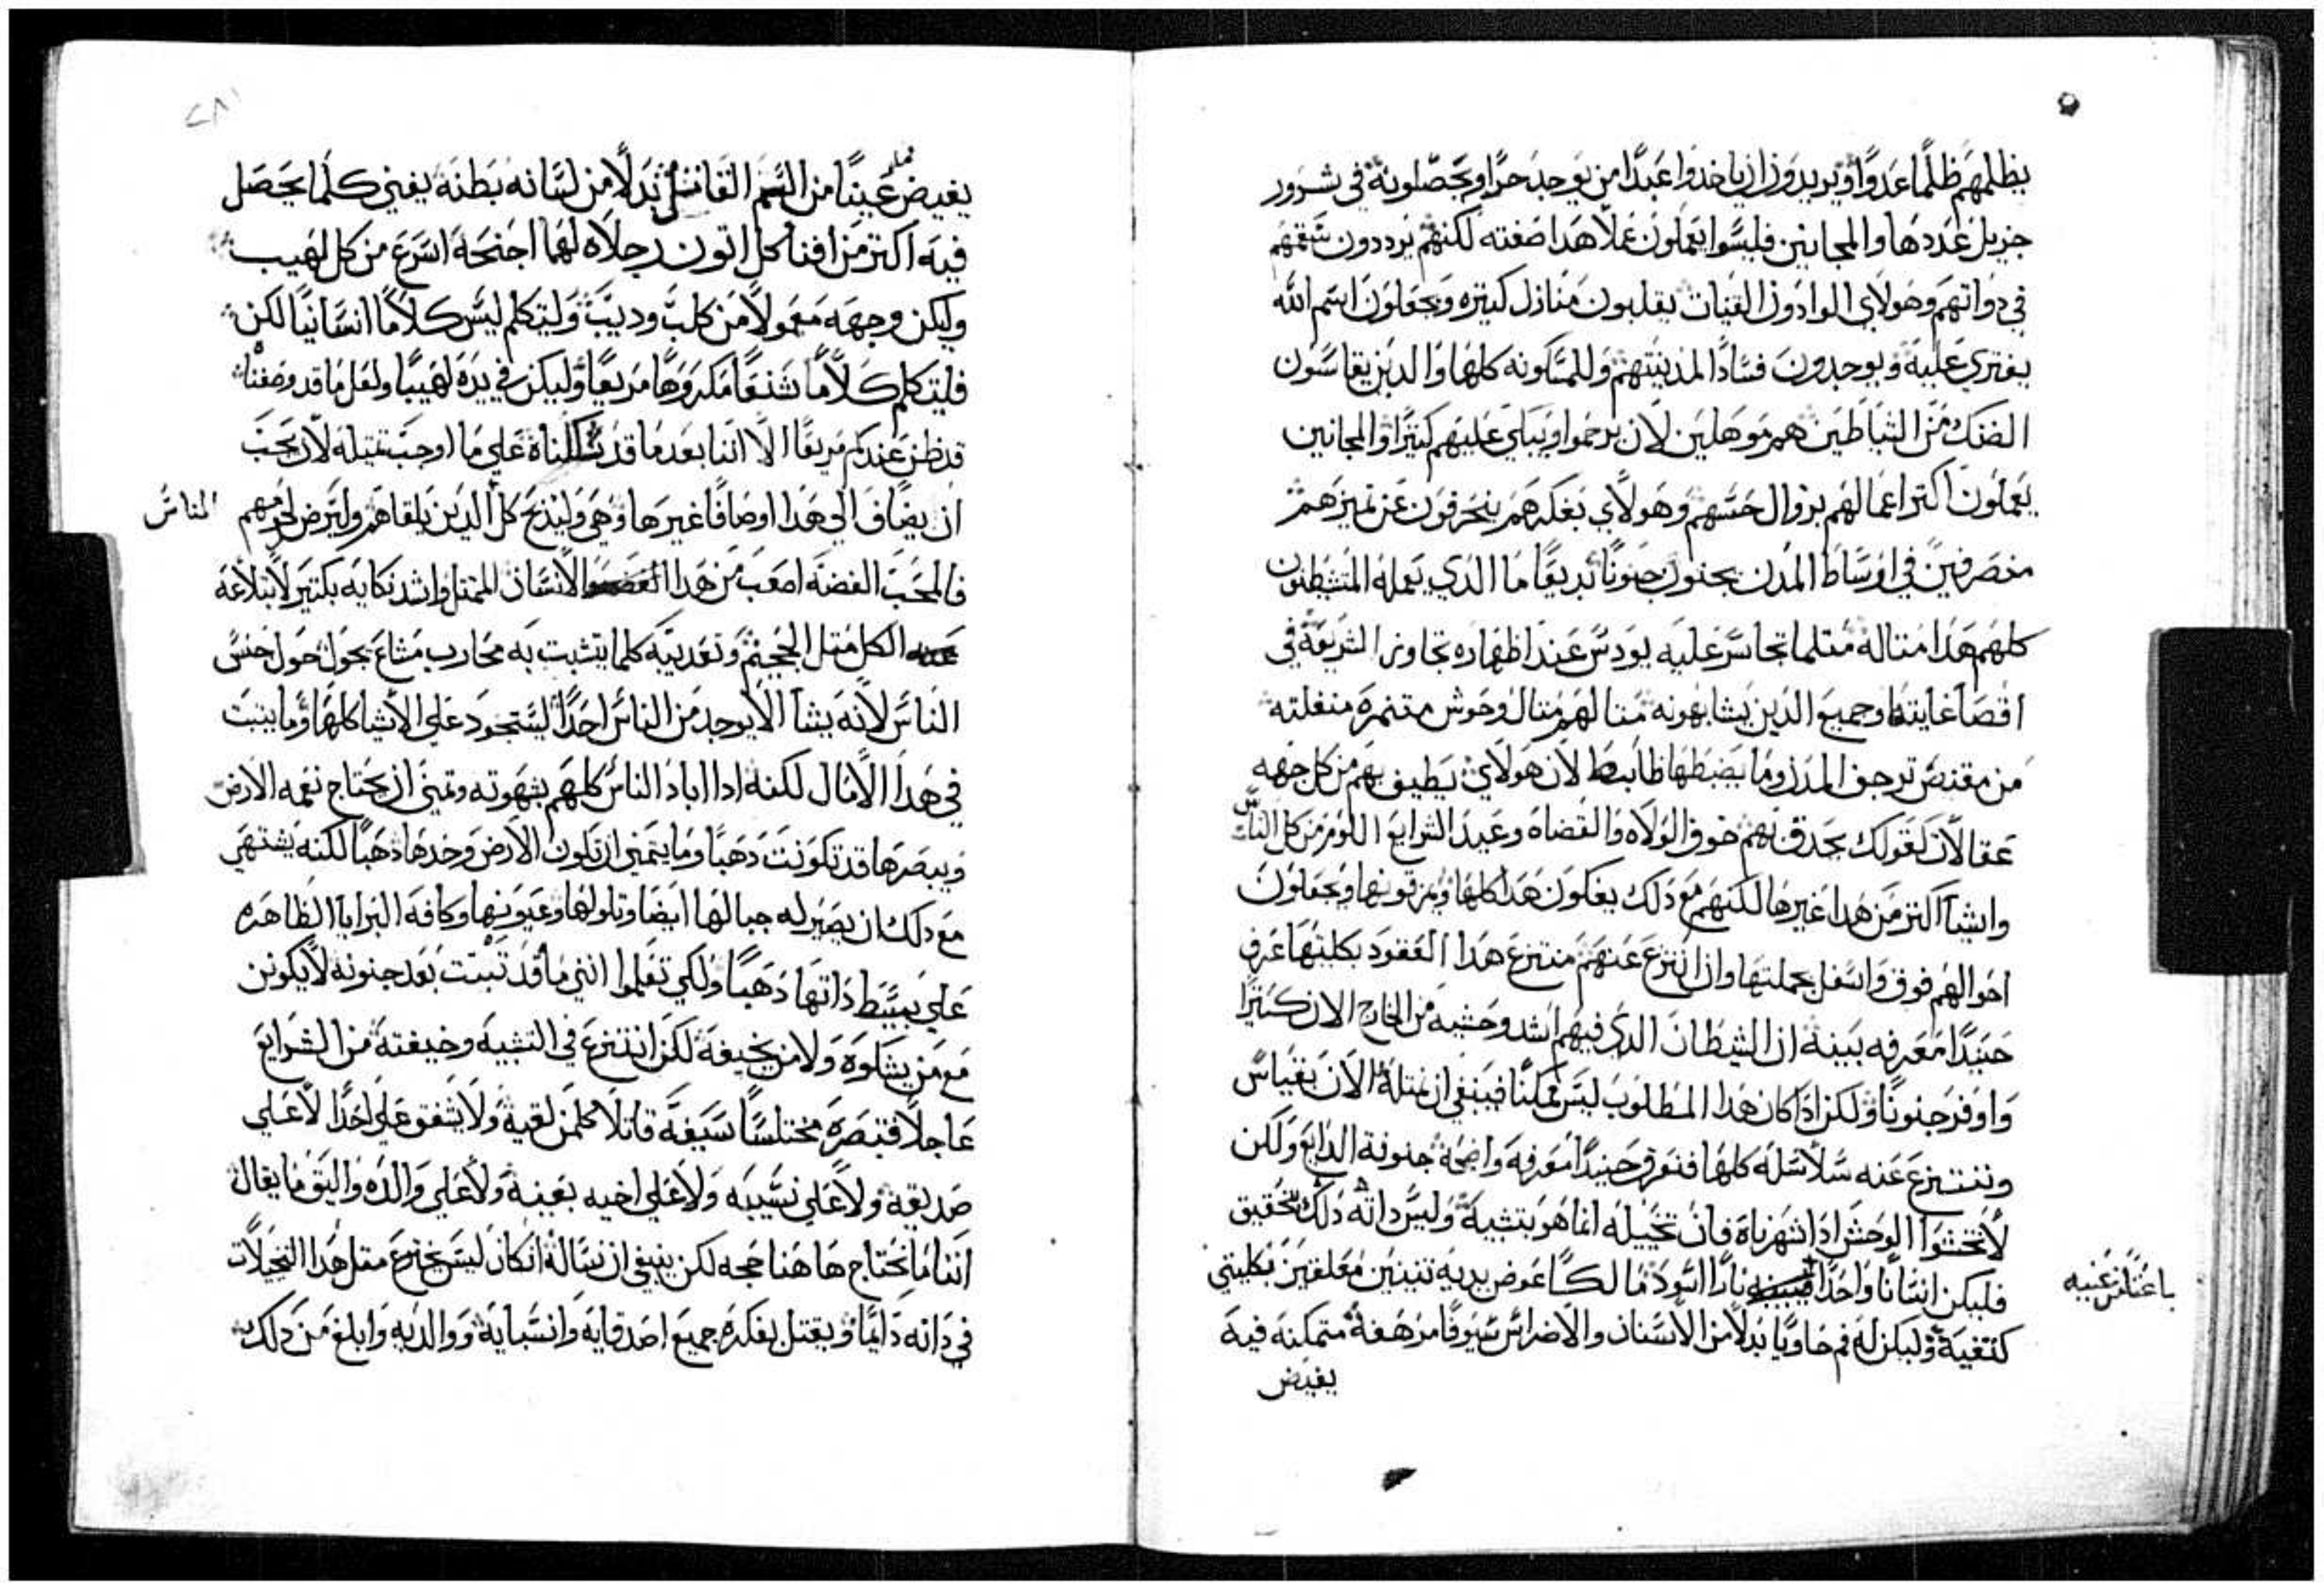 يظلمهم ظلمًا عدوًا ويريدون ان ياخدوا عبدًا من يوجد حرًا ويحصلونه في شرور
جزيل عددها والمجانين فليسوا يعملون عملًا هدا صفته لكنهم يرددون سقمهم
في دواتهم وهولاي الوادون القينات يقلبون منازل كتيره ويجعلون اسم الله
يفتري عليه ويوجدون فسادًا لمدينتهم وللمسكونه كلها والدين يقاسون
الضنك من الشياطين هم موهلين لان يرحموا ويبكي عليهم كتيرًا والمجانين
يعملون اكتر اعمالهم بزوال حسهم وهولاي بفكرهم ينحرفون عن تميزهم
متصرفين في اوساط المدن يجنون جنونًا بديعًا ما الدي يعمله المتشيطنون
كلهم هدا متاله متلما تجاسر عليه يودس عند اظهاره تجاوز الشريعة في
اقصا غايتها وجميع الدين يشابهونه متالهم متال وحوش متنمره منفلته
من مقتنص ترجف المدن وما يضبطها ضابط لان هولاي يطيف بهم من كل جهه
عقالات كقولك يحدق بهم خوف الولاه والقضاه وعيد الشرايع اللوم من كل الناس
واشيا اكتر من هدا غيرها لكنهم مع دلك يفكون هدا كلها ويمزقونها ويجعلون
احوالهم فوق واسفل بجملتها وان انتزع عنهم منتزع هدا العقود بكليتها عرف
حينيدًا معرفه بينه ان الشيطان الدي فيهم اشد وحشيه من الخارج الان كتيرًا
واوفر جنونًا ولكن ادا كان هدا المطلوب ليس ممكنًا فينبغي ان نمتله الان بقياس
وننتزع عنه سلاسله كلها فنعرف حينيدًا معرفه واضحه جنونه الدايع ولكن
لا تخشوا الوحش ادا شهرناه فان تخييله انما هو بتشبيه وليس داته دلك بتحقيق
فليكن انسانًا واحدًا نارًا اسود مالكًا عوض يديه تنينين معلقين بكليتي
باعتًا من عينيه
كتفيه وليكن له فم حاويًا بدلًا من الاسنان والاضراس سيوفًا مرهفه متمكنه فيه
يفيض
يفيض عينًا من السم القاتل بدلًا من لسانه بطنه يفني كلما يحصل
فيه اكتر من افنا كل اتون رجلاه لهما اجنحه اسرع من كل لهيب
وليكن وجهه معمولًا من كلب وديب وليتكلم ليس كلامًا انسانيًا لكن
فليتكلم كلامًا شنعًا مكروهًا مريعًا وليكن في يده لهيبًا ولعل ما قد وصفناه
قد ظن عندكم مريعًا الا اننا بعدما قد شكلناه علي ما اوجب تمتيله لان يجب
ان يضاف الي هدا اوصافًا غيرها وهي وليدبح كل الدين يلقاهم وليرض لحومهم
الناس
فالمحب الفضه اصعب من هدا الانسان الممتل واشد نكايه بكتير لابتلاعه
الكل متل الجحيم وتعديته كلما يتشبت به محارب مشاع يجول حول جنس
الناس لانه يشا الا يوجد من الناس احدًا ليستحود علي الاشيا كلها وما يتبت
في هدا الامال لكنه ادا اباد الناس كلهم بشهوته وتمني ان يحتاج نعمه الارض
ويبصرها قد تكونت دهبًا وما يتمني ان تكون الارض وحدها دهبًا لكنه يشتهي
مع دلك ان يصير له جبالها ايضًا وتلولها وعيونها وكافه البرايا الظاهره
علي بسيط داتها دهبًا ولكي تعلموا انني ما قد تبتت بعد جنونه لا يكونن
مع من يشكوه ولا من يخيفه لكن انتزع في التشبيه وخيفته من الشرايع
عاجلًا فتبصره مختلسًا سيفه قاتلًا كل من لقيه ولا يشفق علي احدًا لا علي
صديقه ولا علي نسيبه ولا علي اخيه بعينه ولا علي والده واليق ما يقال
اننا ما نحتاج هاهنا حجه لكن ينبغي ان نساله ان كان ليس يخترع متل هدا التخيلات
في داته دايمًا ويقتل بفكره جميع اصدقايه وانسبايه ووالديه وابلغ من دلك